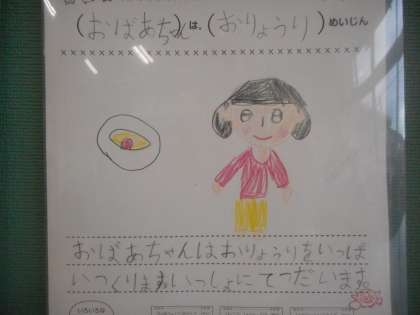 (おばあちゃん)は、(おりょうり)めいじん
おばあちゃんはおりょうりをいっぱ
いつくりますいっしょにてつだいます。
いろいろな